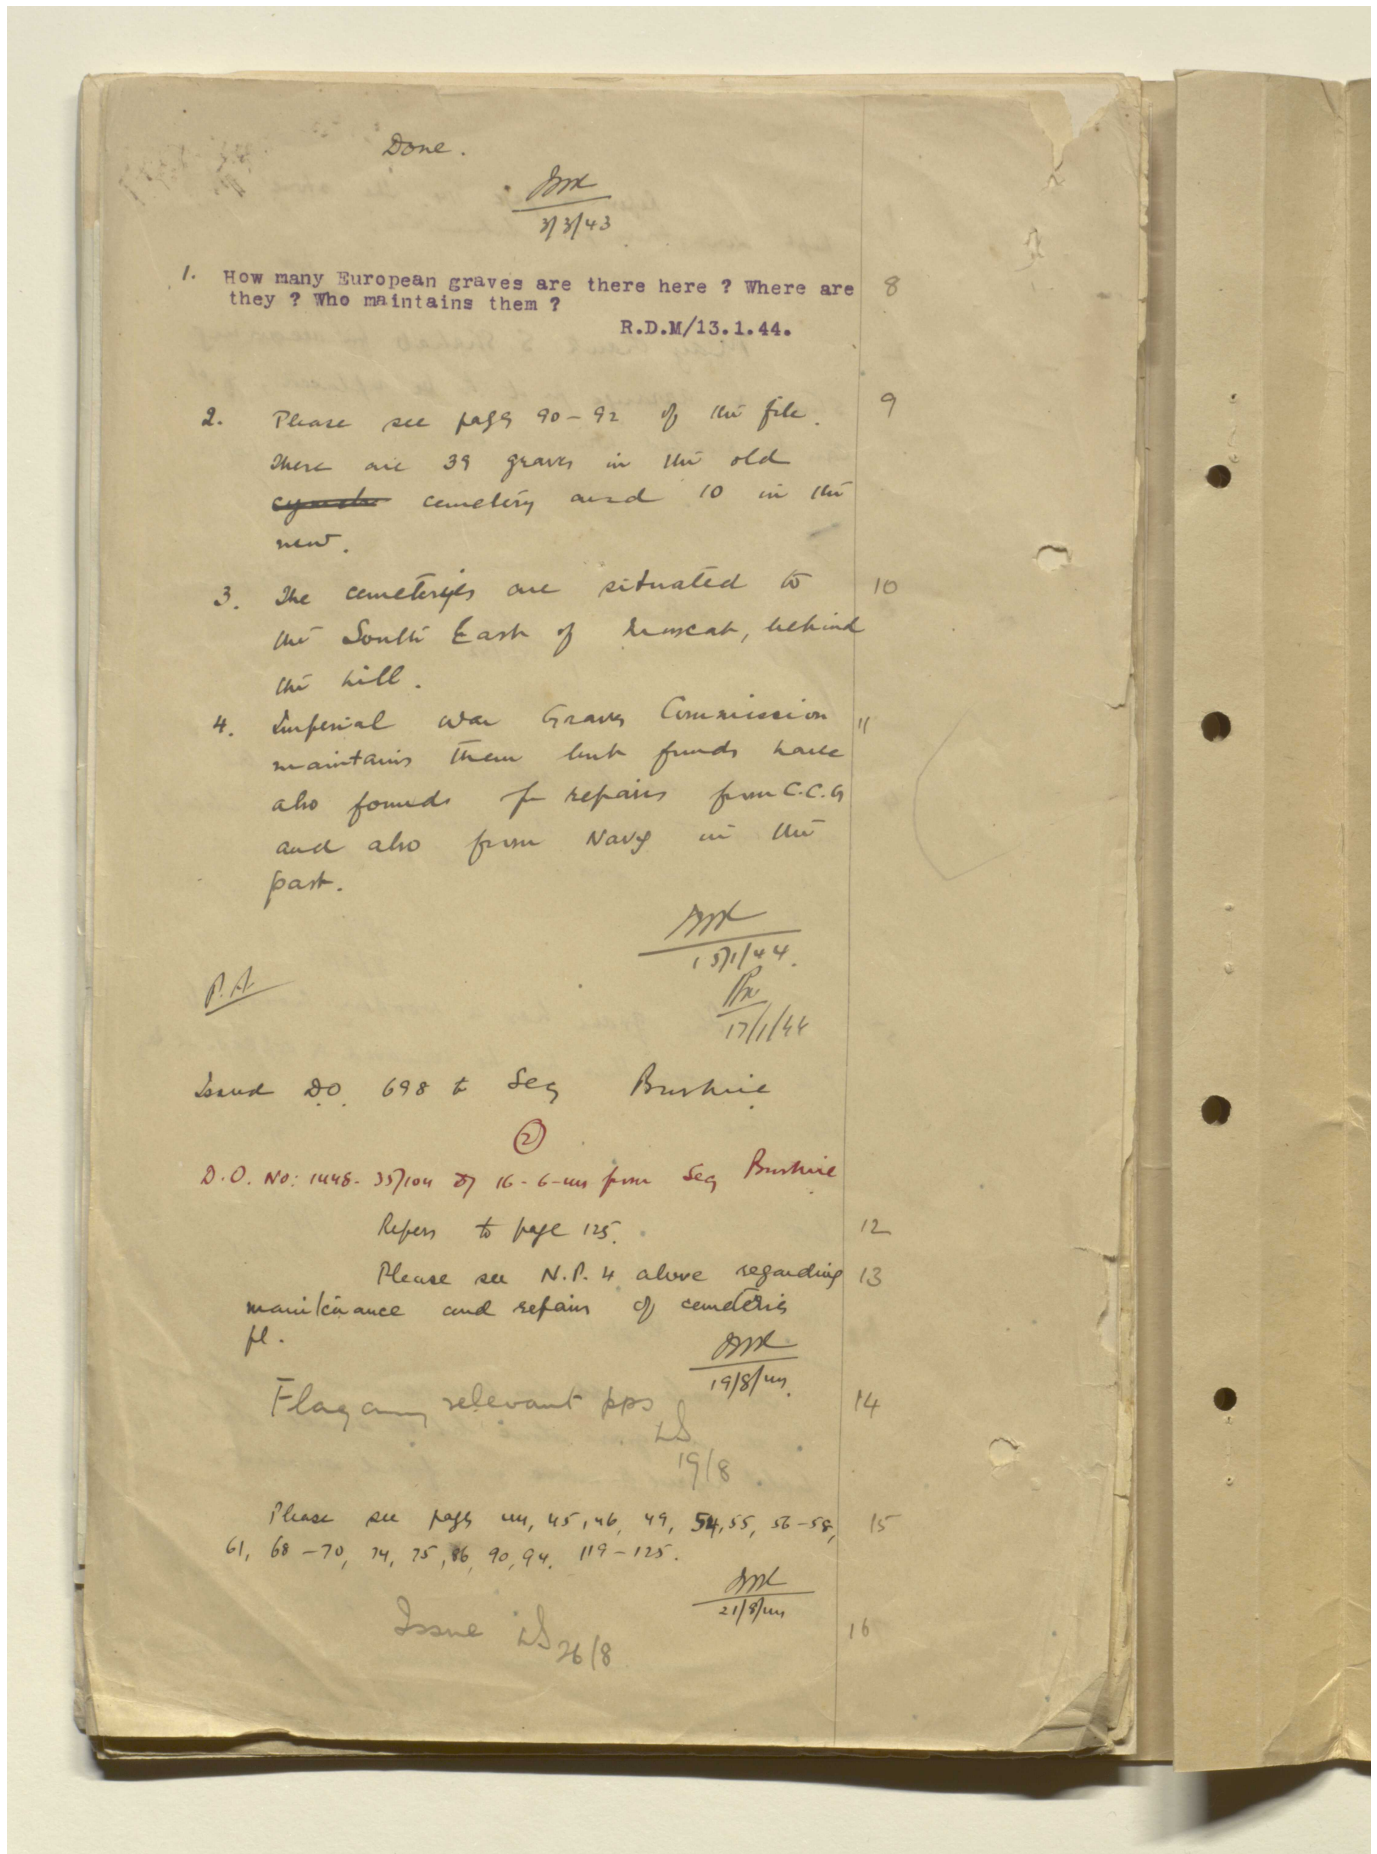 Done.
3/3/43
1. How many European graves are there here ? Where are 8
they ? Who maintains them ?
R.D.M/13.1.44.
2. Please see pages 90-92 of the file. 9
There are 39 graves in the old
cemetery and 10 in the
new.
3. The cemeteries are situated to 10
the South East of Muscat, behind
the hill.
4. Imperial War Graves Commission 11
maintains them but funds have
also founds for repairs from C.C.G
and also from Navy in the
past.
15/1/44.
P.A
17/1/44
Issued D.O. 698 to Secy Bushire
(2)
D.O. No: 1448-35/104 of 16-6-44 from Secy Bushire
Refers to page 125. 12
Please see N.P. 4 above regarding 13
maintenance and repairs of cemeteries
pl.
19/8/44.
Flag any relevant pps 14
19/8
Please see pages 44, 45, 46, 49, 54, 55, 56-58, 15
61, 68-70, 74, 75, 86, 90, 94, 119-125.
21/8/44
Issue 26/8 16